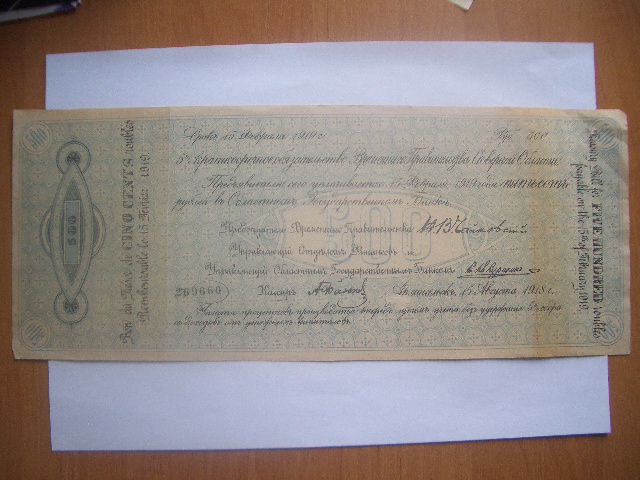 Срокъ 15 Февраля 1919 г. Руб. 500
5% Краткосрочное обязательство Временнаго Правительства Сѣверной Области
Предъявителю сего уплачивается 15 Февраля 1919 года пятьсотъ
рублей въ Областномъ Государственномъ Банкѣ
Предсѣдатель Временнаго Правительства Н.В. Чайковскій
Управляющій Отдѣломъ Финансовъ и
Управляющій Областнымъ Государственнымъ Банкомъ
269660 Кассиръ Архангельскъ, 15 Августа 1918 г.
Уплата процентовъ производится впередъ, путемъ учета, безъ удержанія 5% сбора
съ доходовъ отъ денежныхъ капиталовъ.
Bon du Trésor de CINQ CENTS roubles
Remboursable le 15 Février 1919.
500
Treasury Bill for FIVE HUNDRED roubles
payable on the 15 of February 1919.
500
500
500
500
500